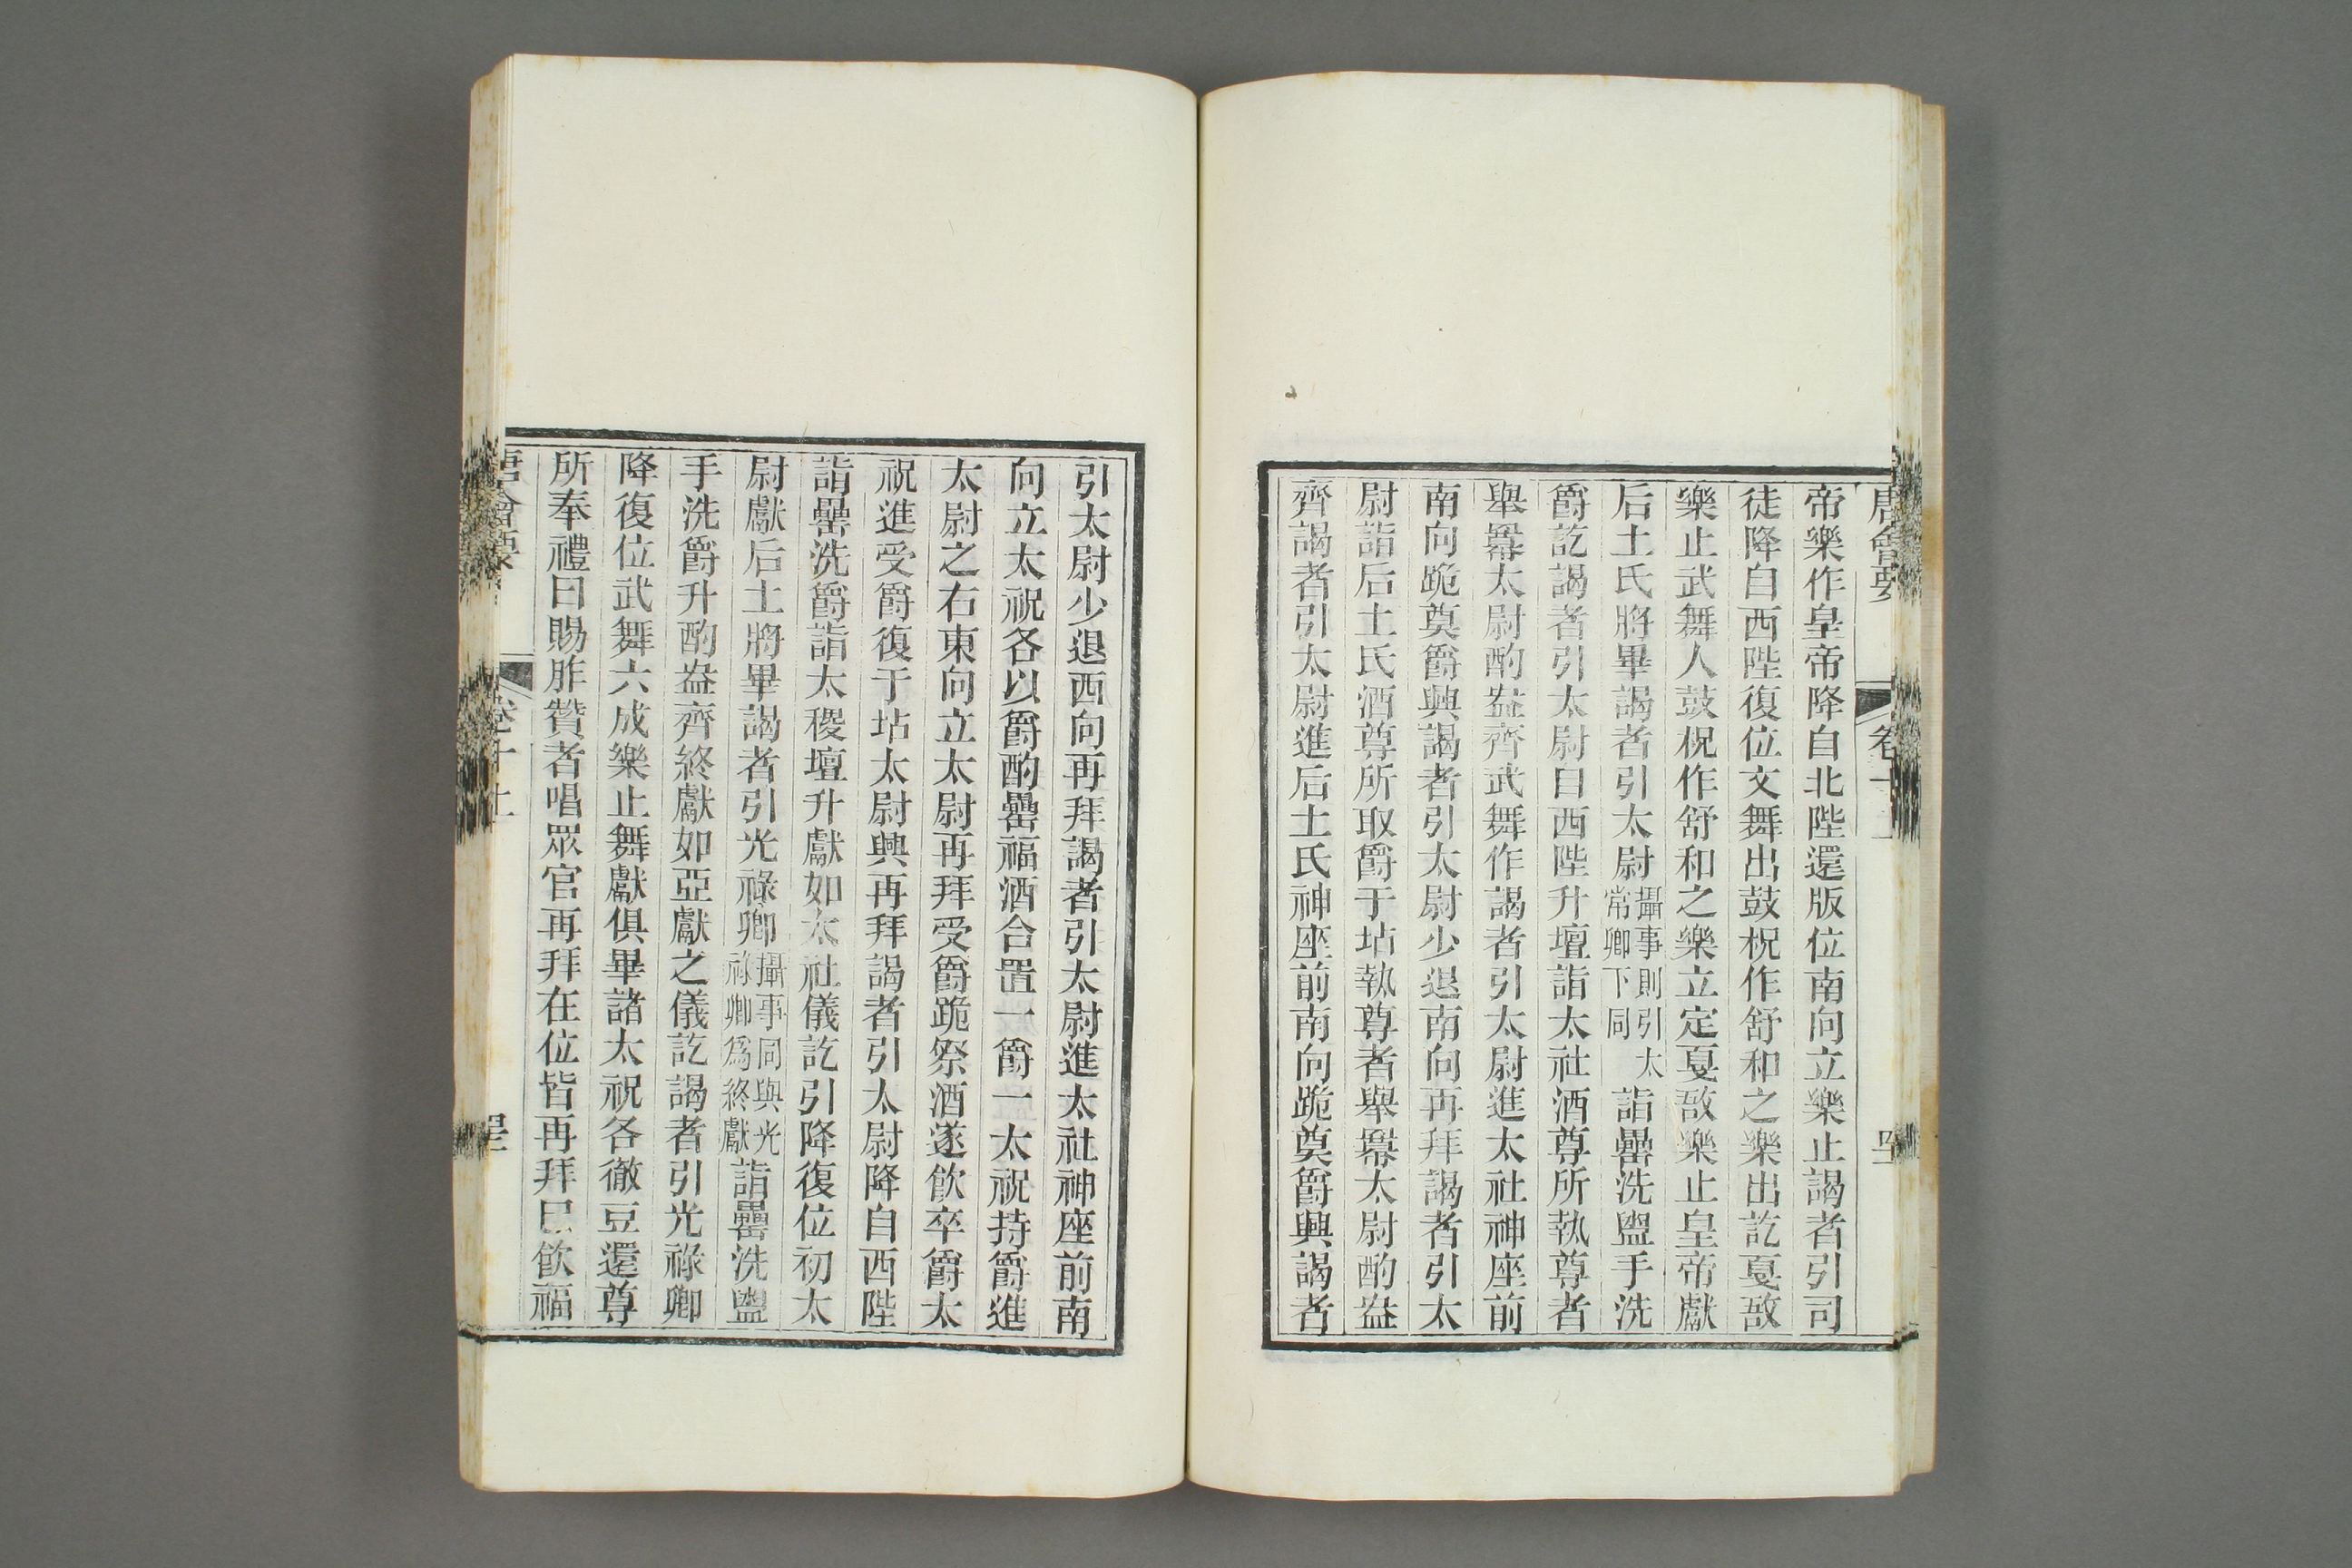 唐會要 卷十
帝樂作皇帝降自北陛還版位南向立樂止謁者引司
徒降自西陛復位文舞出鼓柷作舒和之樂出訖戛敔
樂止武舞人鼓柷作舒和之樂立定戛敔樂止皇帝獻
后土氏將畢謁者引太尉攝事則引太常卿下同詣罍洗盥手洗
爵訖謁者引太尉自西陛升壇詣太社酒尊所執尊者
舉冪太尉酌盎齊武舞作謁者引太尉進太社神座前
南向跪奠爵興謁者引太尉少退南向再拜謁者引太
尉詣后土氏酒尊所取爵于坫執尊者舉冪太尉酌盎
齊謁者引太尉進后土氏神座前南向跪奠爵興謁者
引太尉少退西向再拜謁者引太尉進太社神座前南
向立太祝各以爵酌罍福酒合置一爵一太祝持爵進
太尉之右東向立太尉再拜受爵跪祭酒遂飲卒爵太
祝進受爵復于坫太尉興再拜謁者引太尉降自西陛
詣罍洗爵詣太稷壇升獻如太社儀訖引降復位初太
尉獻后土將畢謁者引光祿卿攝事同與光祿卿為終獻詣罍洗盥
手洗爵升酌盎齊終獻如亞獻之儀訖謁者引光祿卿
降復位武舞六成樂止舞獻俱畢諸太祝各徹豆還尊
所奉禮曰賜胙贊者唱眾官再拜在位皆再拜已飲福
唐會要 卷十上